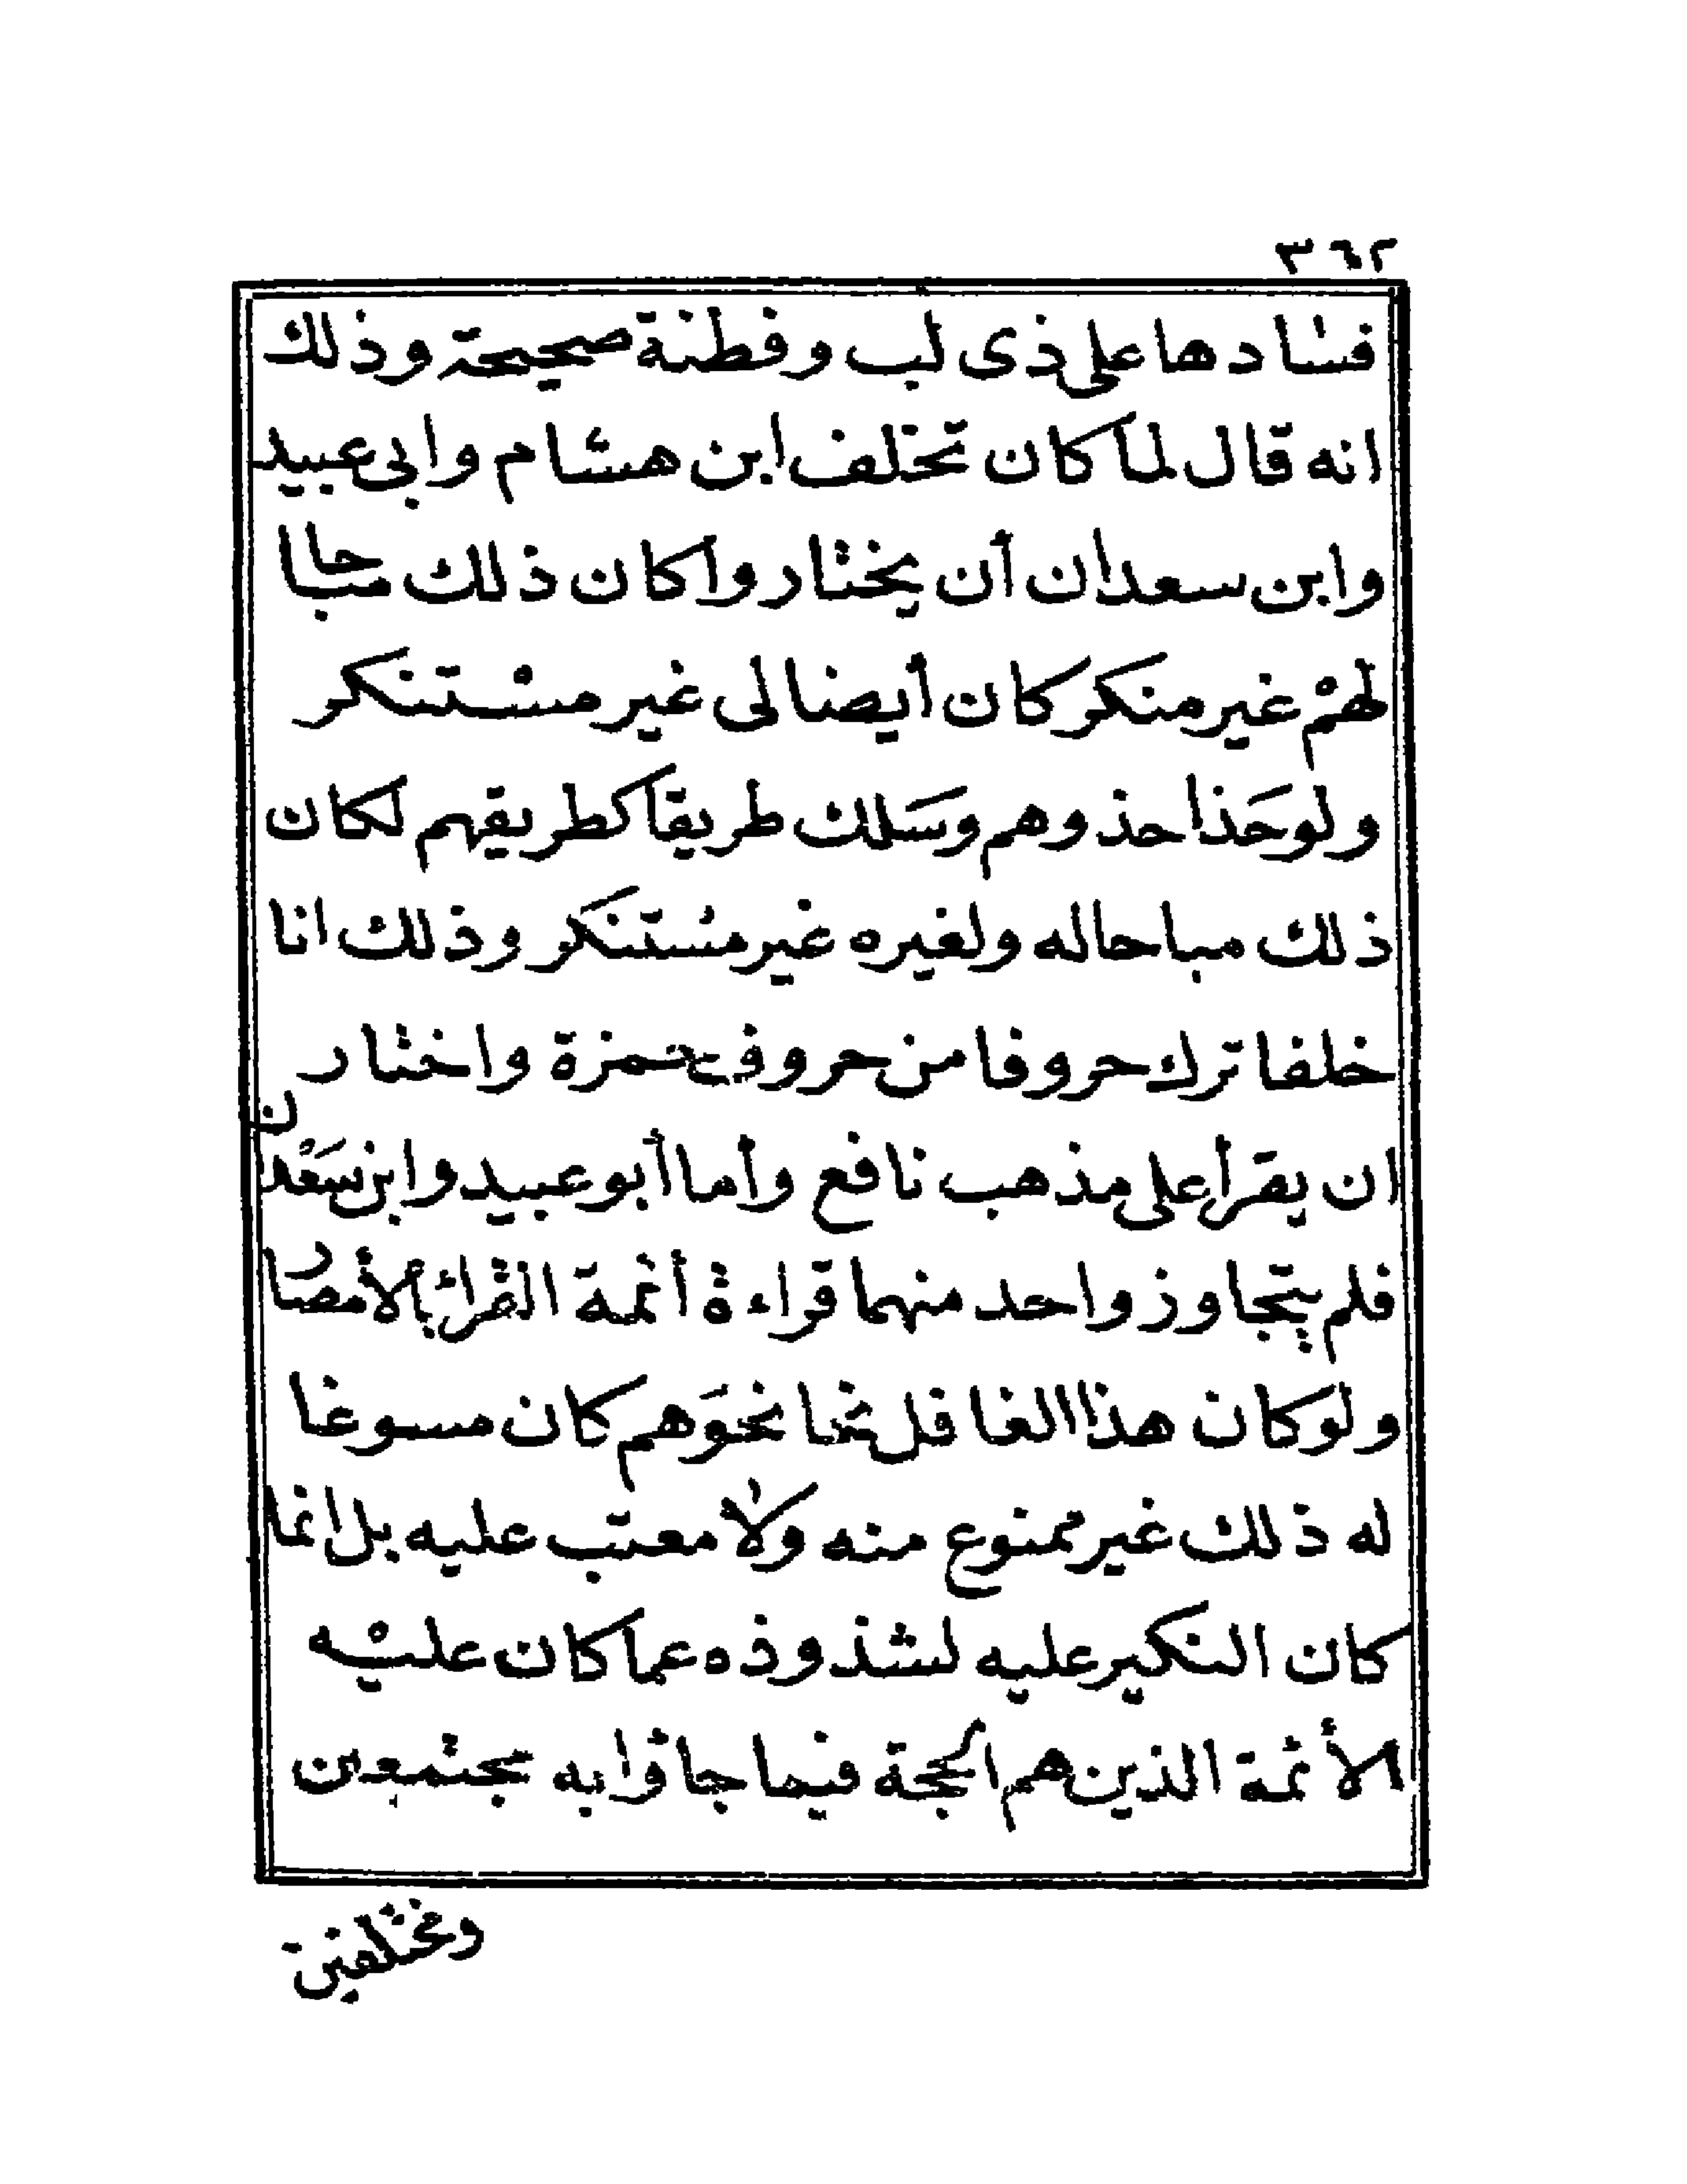 ٣٦٢
فسادها على ذى لب وفطنة صحيحة وذلك
انه قال لما كان تخلف ابن هشام وابى عبيد
وابن سعدان أن يختاروا كان ذلك مباحا
لهمْ غير منكر كان أيضا لى غير مسْتنكر
ولو حَذا حذوهم وسَلك طريقا كطريقهم لكان
ذلك مباحا له ولغيره غير مستنكر وذلك انا
خلفا ترك حروفا من حروف حمزة واختار
ان يقرأ على مذهب نافع وأما أبو عبيد وابن سَعْدان
فلم يتجاوز واحد منهما قراءة أئمة القراءْ بالأمصار
ولو كان هذا الغافل نحا نحوَهم كان مسوغا
له ذلك غير ممنوع منه ولا معتب عليه بل انما
كان النكير عليه لشذوذه عما كان عليْه
الأئمة الذين هم الحجة فيما جاؤا به مجتمعين
ومختلفين